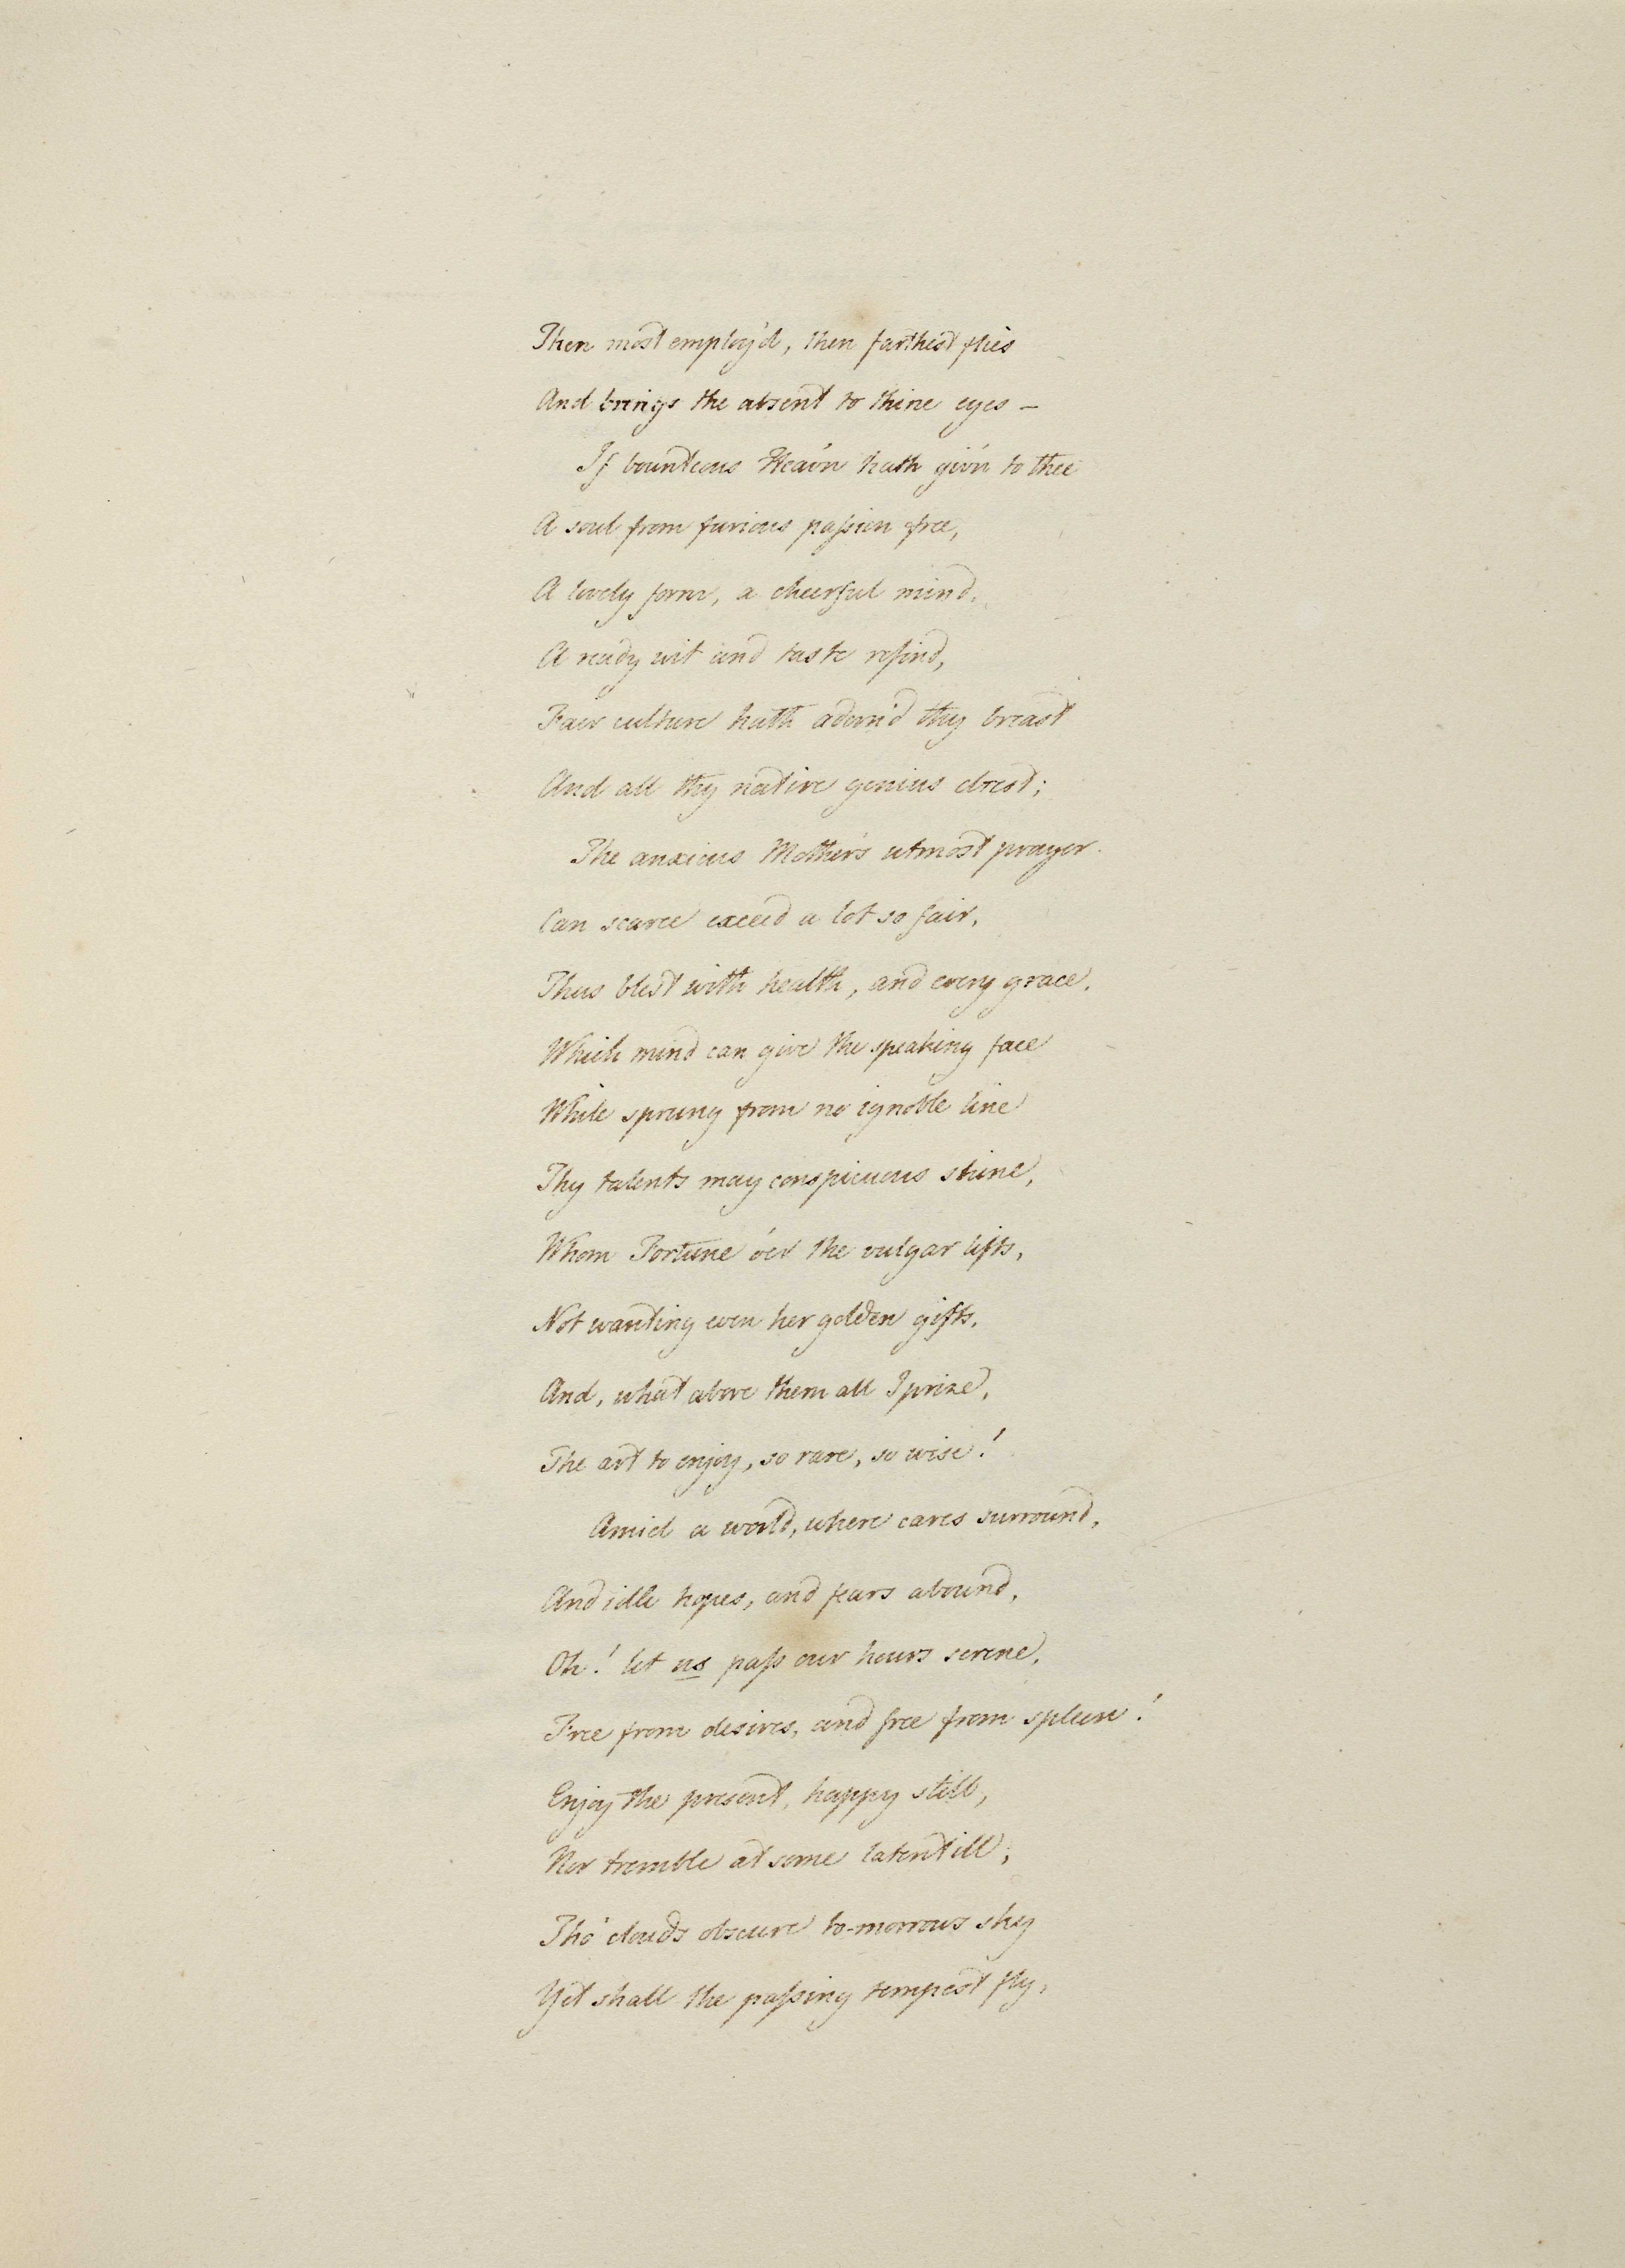 Then most employ'd, then farthest flies
And brings the absent to thine eyes –
If bounteous Heav'n hath giv'n to thee
A soul from furious paſsion free,
A lovely form, a cheerful mind,
A ready wit and taste refind,
Fair culture hath adorn'd thy breast
And all thy native genius drest;
The anxious Mother's utmost prayer
Can scarce exceed a lot so fair,
Thus blest with health, and every grace,
Which mind can give the speaking face
While sprung from no ignoble line
Thy talents may conspicuous shine,
Whom Fortune o'er the vulgar lifts,
Not wanting even her golden gifts,
And, what above them all I prize,
The art to enjoy, so rare, so wise!
Amid a world, where cares surround,
And idle hopes, and fears abound,
Oh! let us paſs our hours serene,
Free from desires, and free from spleen!
Enjoy the present, happy still,
Nor tremble at some latent ill;
Tho' clouds obscure to-morrows sky
Yet shall the paſsing tempest fly,